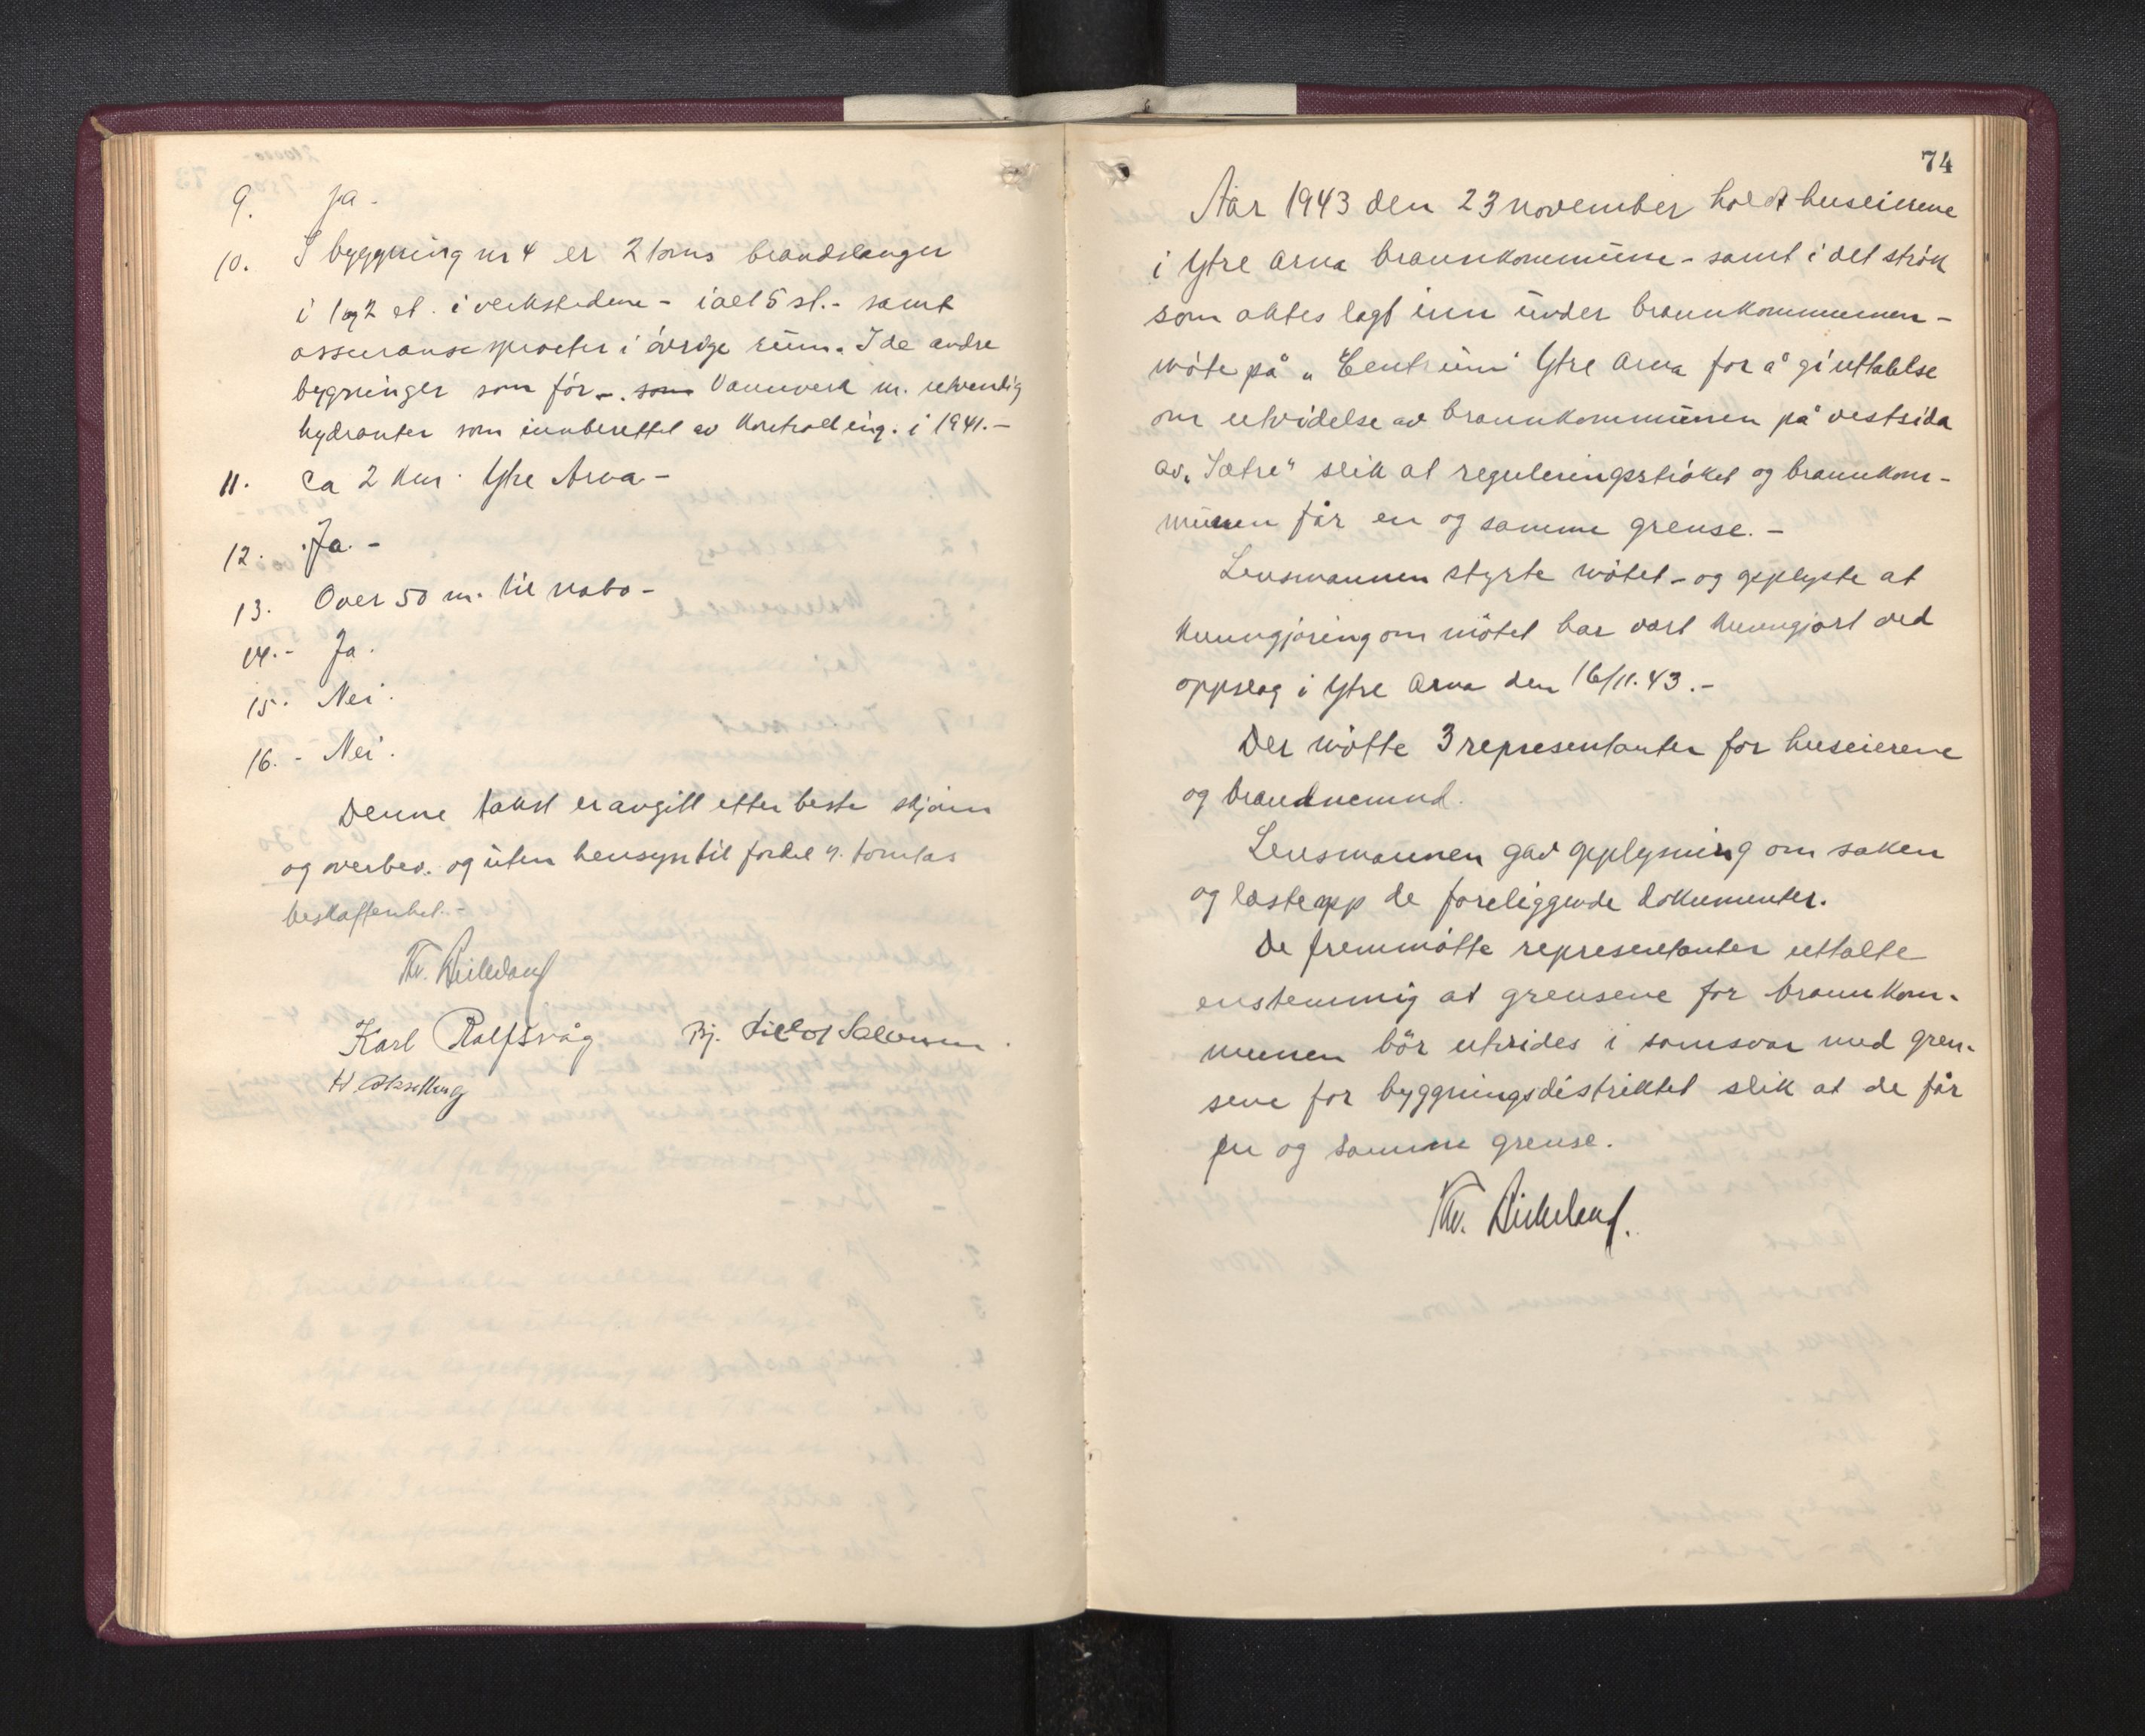 9. Ja -
10. I byggning nr 4 er 2 toms brandslanger
i 1 og 2 et. i verkstedene - i alt 5 st. - samt
assuransesprøiter i øvrige rum. I de andre
bygninger som før -. som Vannverk m. utvendig
hydranter som innberettet av Kontroll ing. i 1941. -
11. Ca 2 km. Ytre Arna -
12. Ja. -
13. Over 50 m. til nabo -
14. - Ja.
15. Nei.
16. - Nei.
Denne takst er avgitt etter beste skjønn
og overbev. og uten hensyn til fordel v. tomtas
beskaffenhet. -
Thv. Birkeland
Karl Rolfsvåg Bj. Salomsen
74
Aar 1943 den 23 november holdt huseierene
i Ytre Arna brannkommune - samt i det strøk
som aktes lagt inn under brannkommunen -
møte på „Centrum" Ytre Arna for å gi uttalelse
om utvidelse av brannkommunen på vestsida
av „Sætre" slik at reguleringsstrøket og brannkom-
munen får en og samme grense. -
Lensmannen styrte møtet - og opplyste at
kunngjøring om møtet har vært kunngjort ved
oppslag i Ytre Arna den 16/11. 43. -
Der møtte 3 representanter for huseierene
og brandnemnd.
Lensmannen gav opplysning om saken
og læste opp de foreliggende dokumenter.
De fremmøtte representanter uttalte
enstemmig at grensene for brannkom-
munen bör utvides i samsvar med gren-
sene for byggningsdistriktet slik at de får
en og samme grense.
Thv. Birkeland.